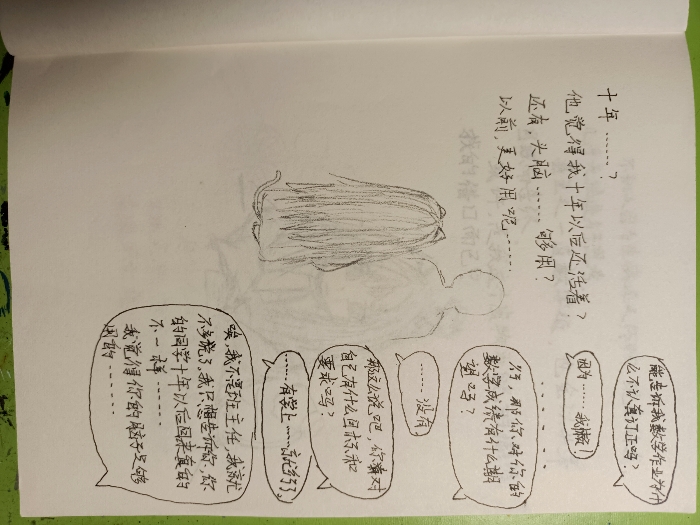 能告诉我数学作业为什
么不认真订正吗?
因为……我懒!
……
行,那你对你的
数学成绩有什么期
望吗?
……没有
那这么说吧,你对
自己有什么目标和
要求吗?
……有学上……就行了。
唉,我不是班主任,我就
不多说了,我只想告诉你,你
的同学十年以后回来真的
不一样……
我觉得你的脑子足够
用的……
十年……?
他觉得我十年以后还活着?
还有,头脑……够用?
以前,更好用吧……